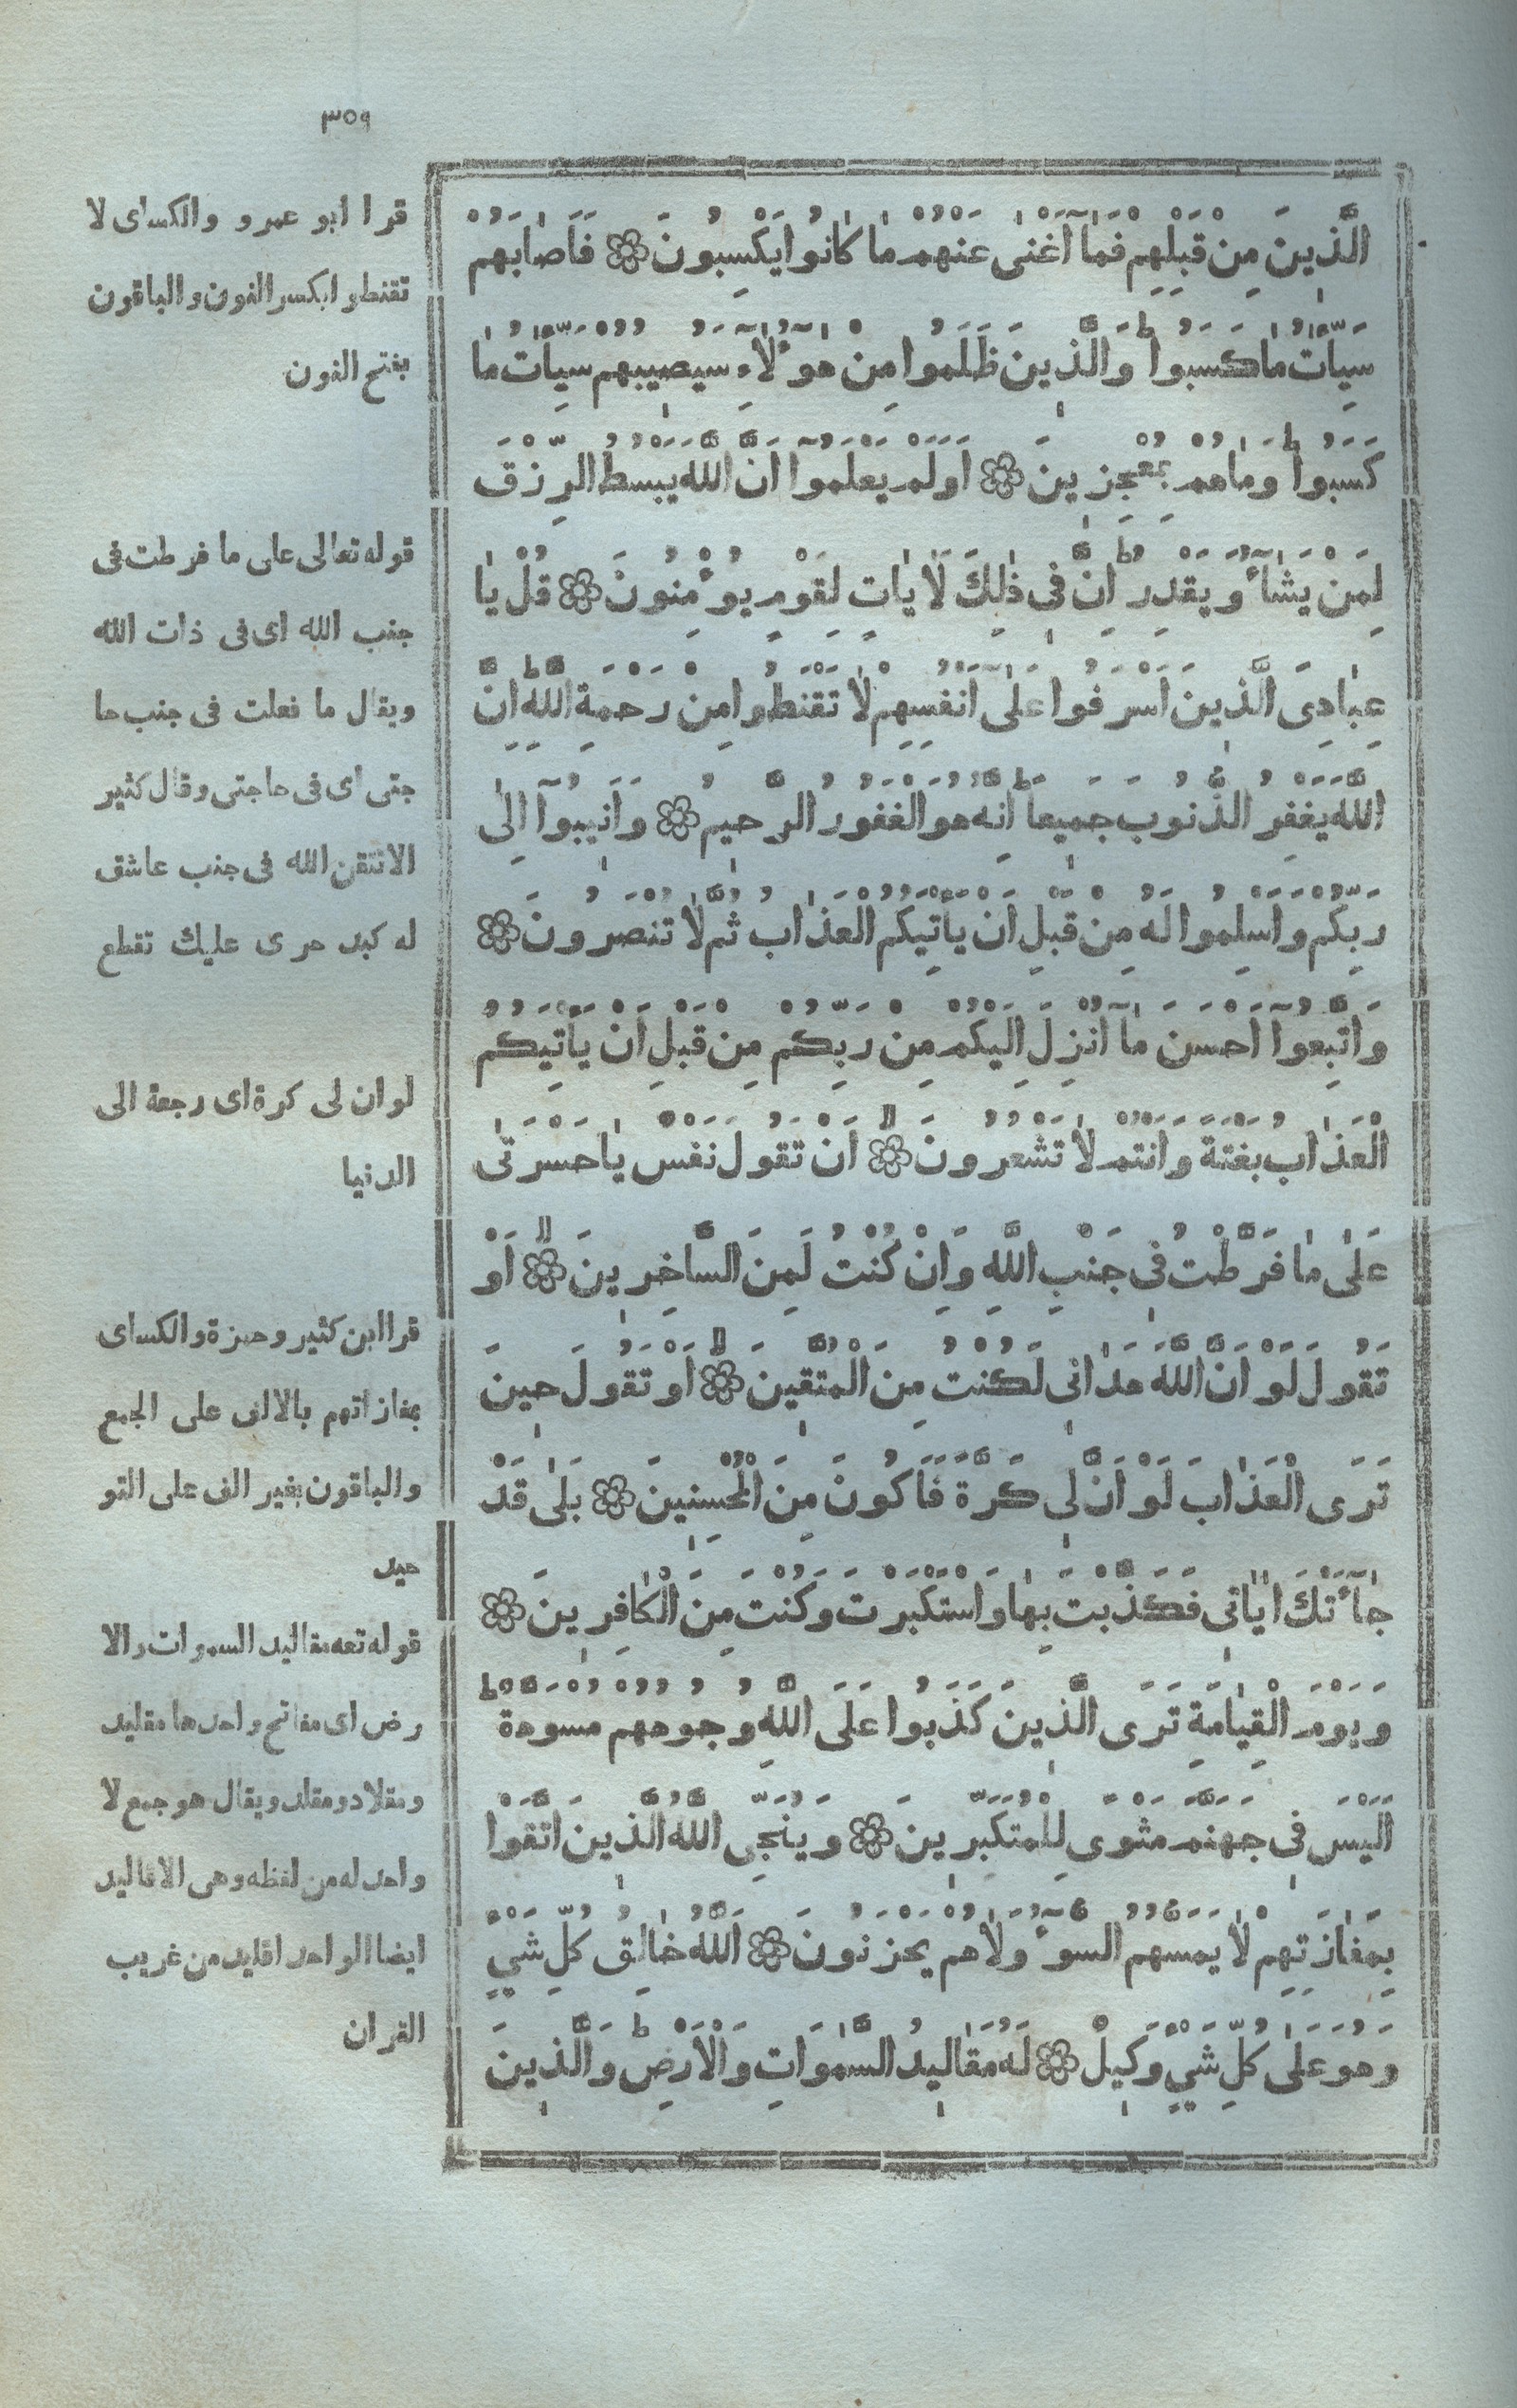 ٣٥٩
الَّذِينَ مِنْ قَبْلِهِمْ فَمَآ اَغْنٰى عَنْهُمْ مٰا كٰانُوا يَكْسِبُونَ ۞ فَاَصٰابَهُمْ
سَيِّاٰتُ مٰا كَسَبُوا ۭ وَالَّذِينَ ظَلَمُوا مِنْ هٰٓؤُلٰآءِ سَيُصِيبُهُمْ سَيِّاٰتُ مٰا
كَسَبُوا ۭ وَمٰا هُمْ بِمُعْجِزِينَ ۞ اَوَلَمْ يَعْلَمُوٓا اَنَّ اللَّهَ يَبْسُطُ الرِّزْقَ
لِمَنْ يَشٰآُٔ وَيَقْدِرُ ۭ اِنَّ فِى ذٰلِكَ لَاٰيٰاتٍ لِقَوْمٍ يُؤْمِنُونَ ۞ قُلْ يٰا
عِبٰادِىَ الَّذِينَ اَسْرَفُوا عَلٰىٓ اَنْفُسِهِمْ لٰا تَقْنَطُوا مِنْ رَحْمَةِ اللَّهِ ۭ اِنَّ
اللَّهَ يَغْفِرُ الذُّنُوبَ جَمِيعاً ۭ اِنَّهُ هُوَ الْغَفُورُ الرَّحِيمُ ۞ وَاَنِيبُوٓا اِلٰى
رَبِّكُمْ وَاَسْلِمُوا لَهُ مِنْ قَبْلِ اَنْ يَأْتِيَكُمُ الْعَذٰابُ ثُمَّ لٰا تُنْصَرُونَ ۞
وَاتَّبِعُوٓا اَحْسَنَ مٰآ اُنْزِلَ اِلَيْكُمْ مِنْ رَبِّكُمْ مِنْ قَبْلِ اَنْ يَأْتِيَكُمُ
الْعَذٰابُ بَغْتَةً وَاَنْتُمْ لٰا تَشْعُرُونَ ۞ اَنْ تَقُولَ نَفْسٌ يٰا حَسْرَتٰى
عَلٰى مٰا فَرَّطْتُ فِى جَنْبِ اللَّهِ وَاِنْ كُنْتُ لَمِنَ السَّاخِرِينَ ۞ اَوْ
تَقُولَ لَوْ اَنَّ اللَّهَ هَدٰانِى لَكُنْتُ مِنَ الْمُتَّقِينَ ۞ اَوْ تَقُولَ حِينَ
تَرَى الْعَذٰابَ لَوْ اَنَّ لِى كَرَّةً فَاَكُونَ مِنَ الْمُحْسِنِينَ ۞ بَلٰى قَدْ
جٰآءَتْكَ اٰيٰاتِى فَكَذَّبْتَ بِهٰا وَاسْتَكْبَرْتَ وَكُنْتَ مِنَ الْكٰافِرِينَ ۞
وَيَوْمَ الْقِيٰامَةِ تَرَى الَّذِينَ كَذَبُوا عَلَى اللَّهِ وُجُوهُهُمْ مُسْوَدَّةٌ ۭ
اَلَيْسَ فِى جَهَنَّمَ مَثْوًى لِلْمُتَكَبِّرِينَ ۞ وَيُنَجِّى اللَّهُ الَّذِينَ اتَّقَوْا
بِمَفٰازَتِهِمْ لٰا يَمَسُّهُمُ السُّوُٓٔ وَلٰا هُمْ يَحْزَنُونَ ۞ اَللَّهُ خٰالِقُ كُلِّ شَيْءٍ
وَهُوَ عَلٰى كُلِّ شَيْءٍ وَكِيلٌ ۞ لَهُ مَقٰالِيدُ السَّمٰوَاتِ وَالْاَرْضِ ۭ وَالَّذِينَ
قرا ابو عمرو والكساى لا
تقنطوا بكسر النون والباقون
بفتح النون
قوله تعالى على ما فرطت فى
جنب الله اى فى ذات الله
ويقال ما فعلت فى جنب حا
جتى اى فى حاجتى وقال كثير
الا تتقن الله فى جنب عاشق
له كبد حرى عليك تقطع
لو ان لى كرة اى رجعة الى
الدنيا
قرا ابن كثير وحمزة والكساى
بمفازاتهم بالالف على الجمع
والباقون بغير الف على التو
حيد
قوله تعه مقاليد السموات والا
رض اى مفاتح واحدها مقليد
ومقلاد ومقلد ويقال هو جمع لا
واحد له من لفظه وهى الاقاليد
ايضا الواحد اقليد من غريب
القران